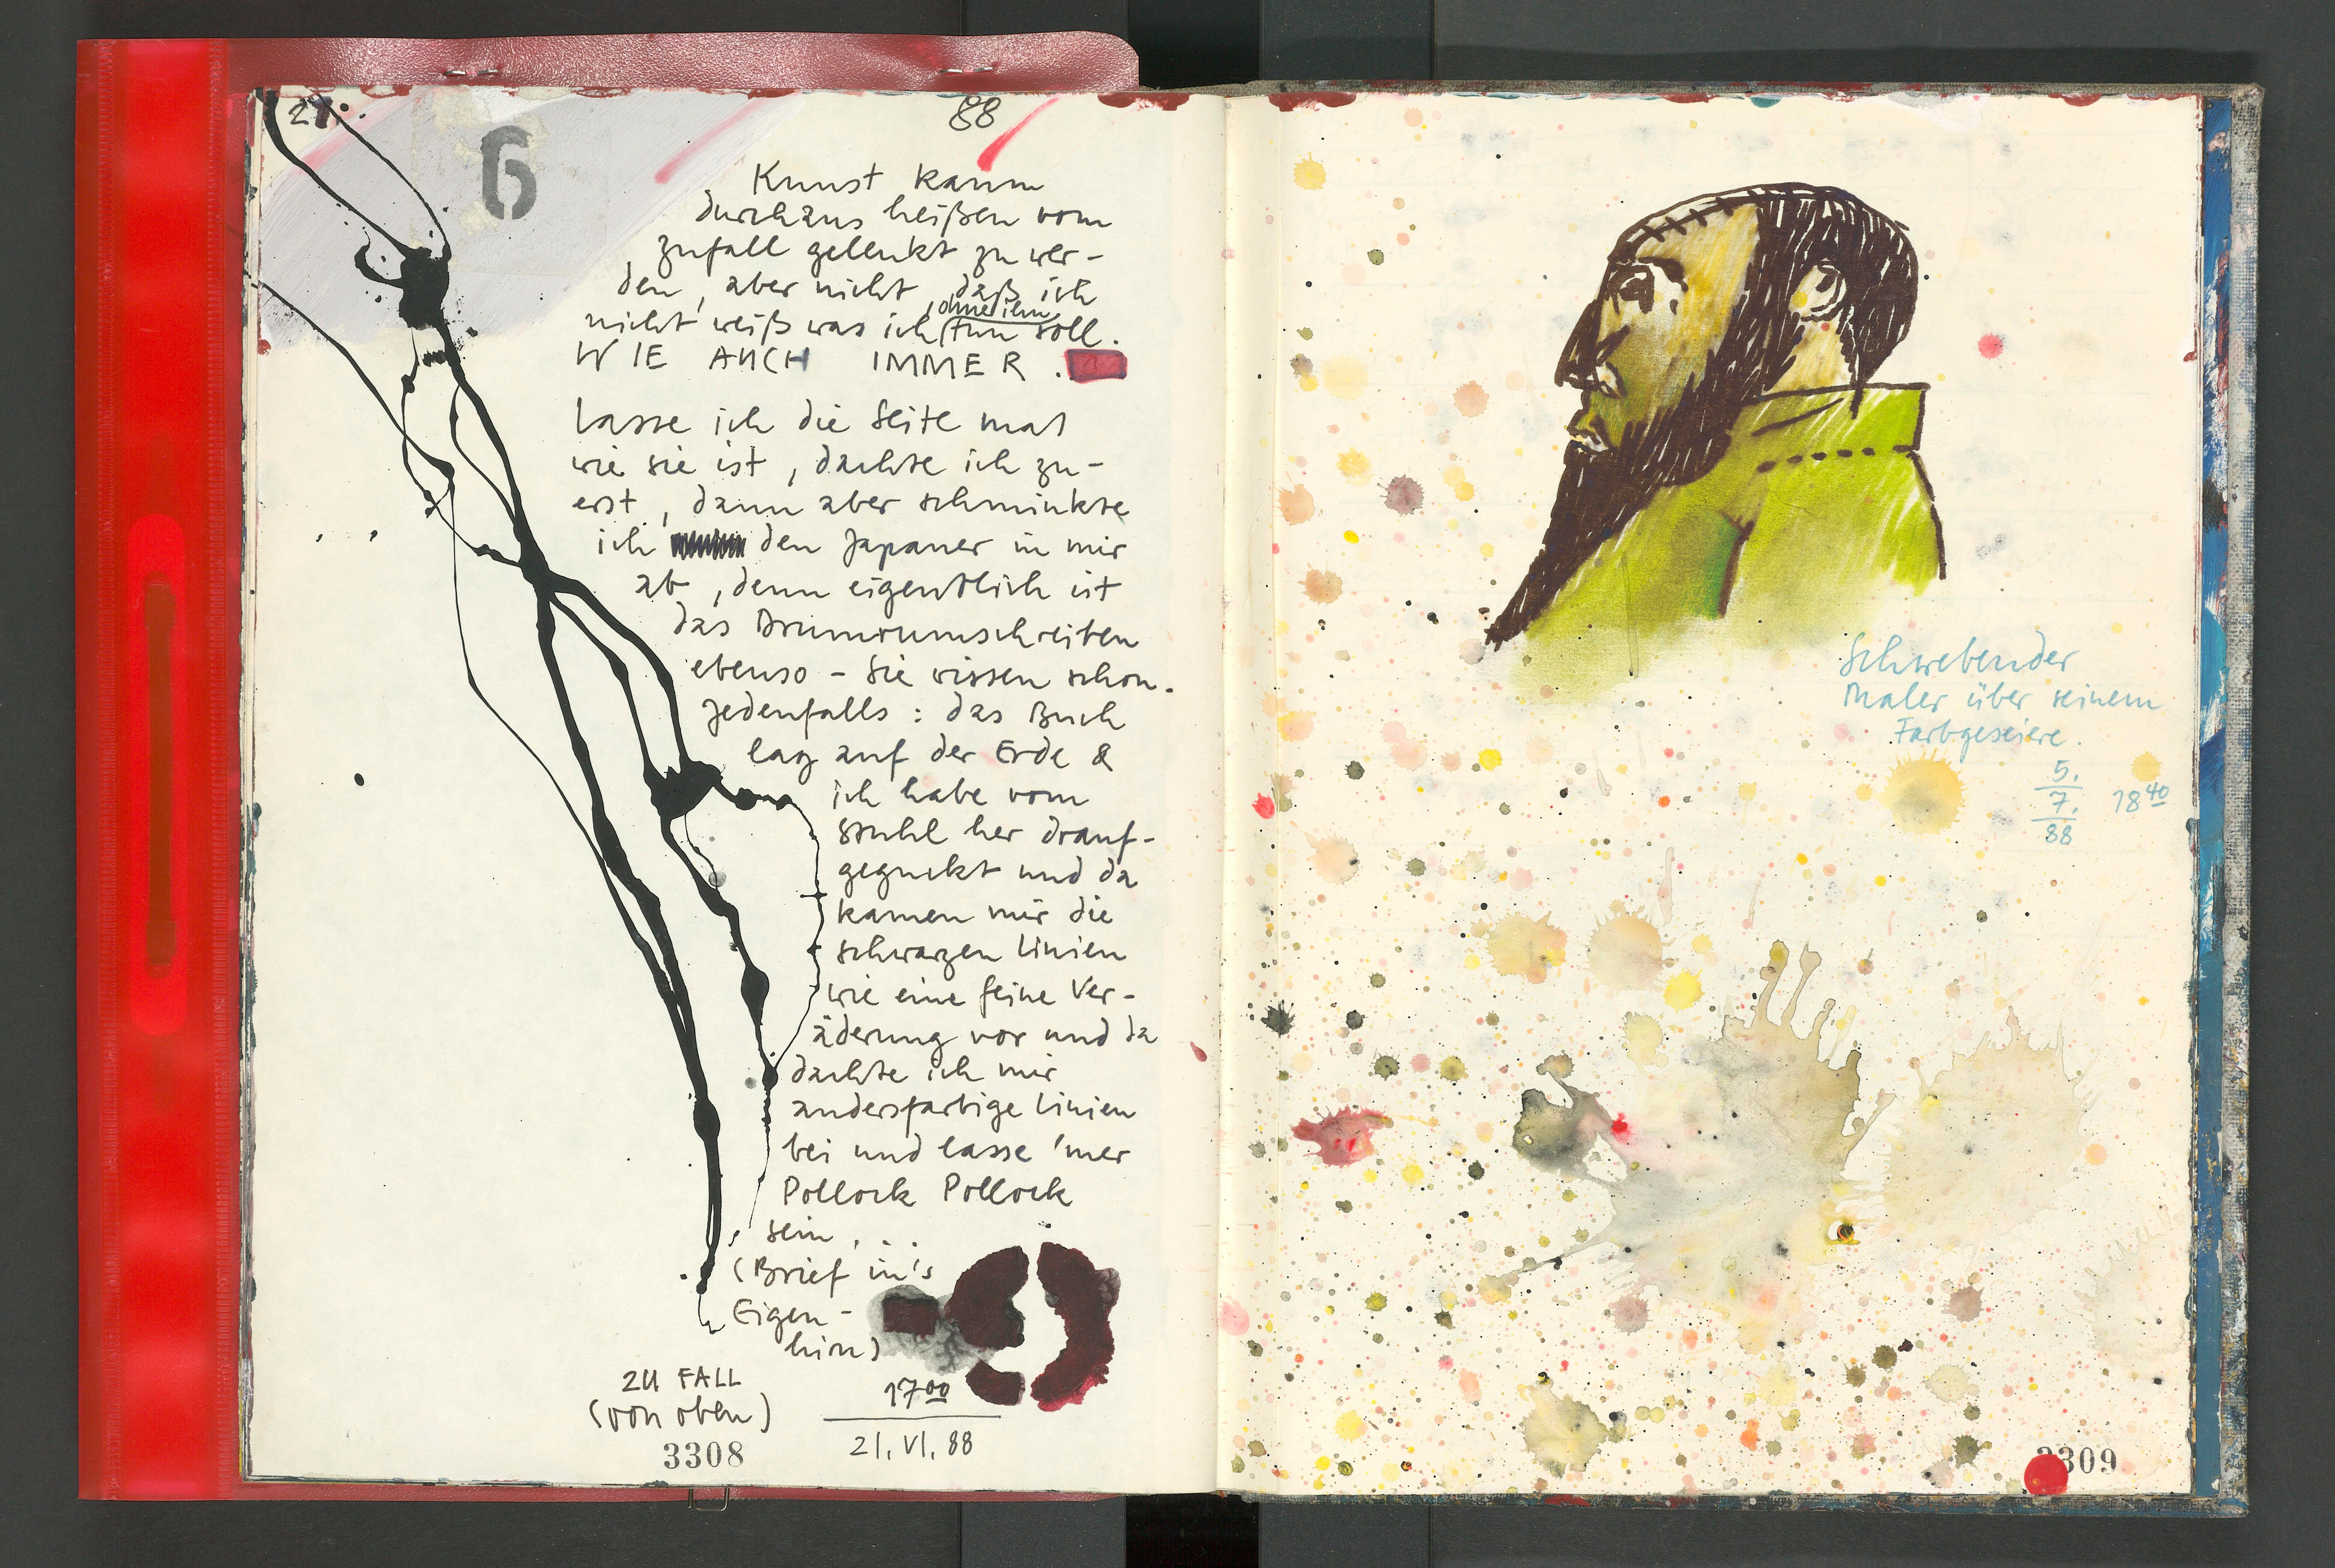 21.
6
88
Kunst kann
durchaus heißen vom
zufall gelenkt zu wer-
den, aber nicht, daß ich
nicht weiß was ich ohne ihn tun soll.
WIE AUCH IMMER.
Lasse ich die Seite mal
wie sie ist, dachte ich zu-
erst, dann aber schminkte
ich den Japaner in mir
ab, denn eigentlich ist
das Drumrumschreiben
ebenso – Sie wissen schon.
Jedenfalls: das Buch
lag auf der Erde &
ich habe vom
Stuhl her drauf-
geguckt und da
kamen mir die
schwarzen Linien
wie eine feine Ver-
äderung vor und da
dachte ich mir
andersfarbige Linien
bei und lasse 'mer
Pollock Pollock
sein...
(Brief in's
Eigen-
hirn)
ZU FALL
(von oben)
17 00
21. VI. 88
3308
Schwebender
Maler über seinem
Farbgeseiere.
5.
7.
88
18 40
3309